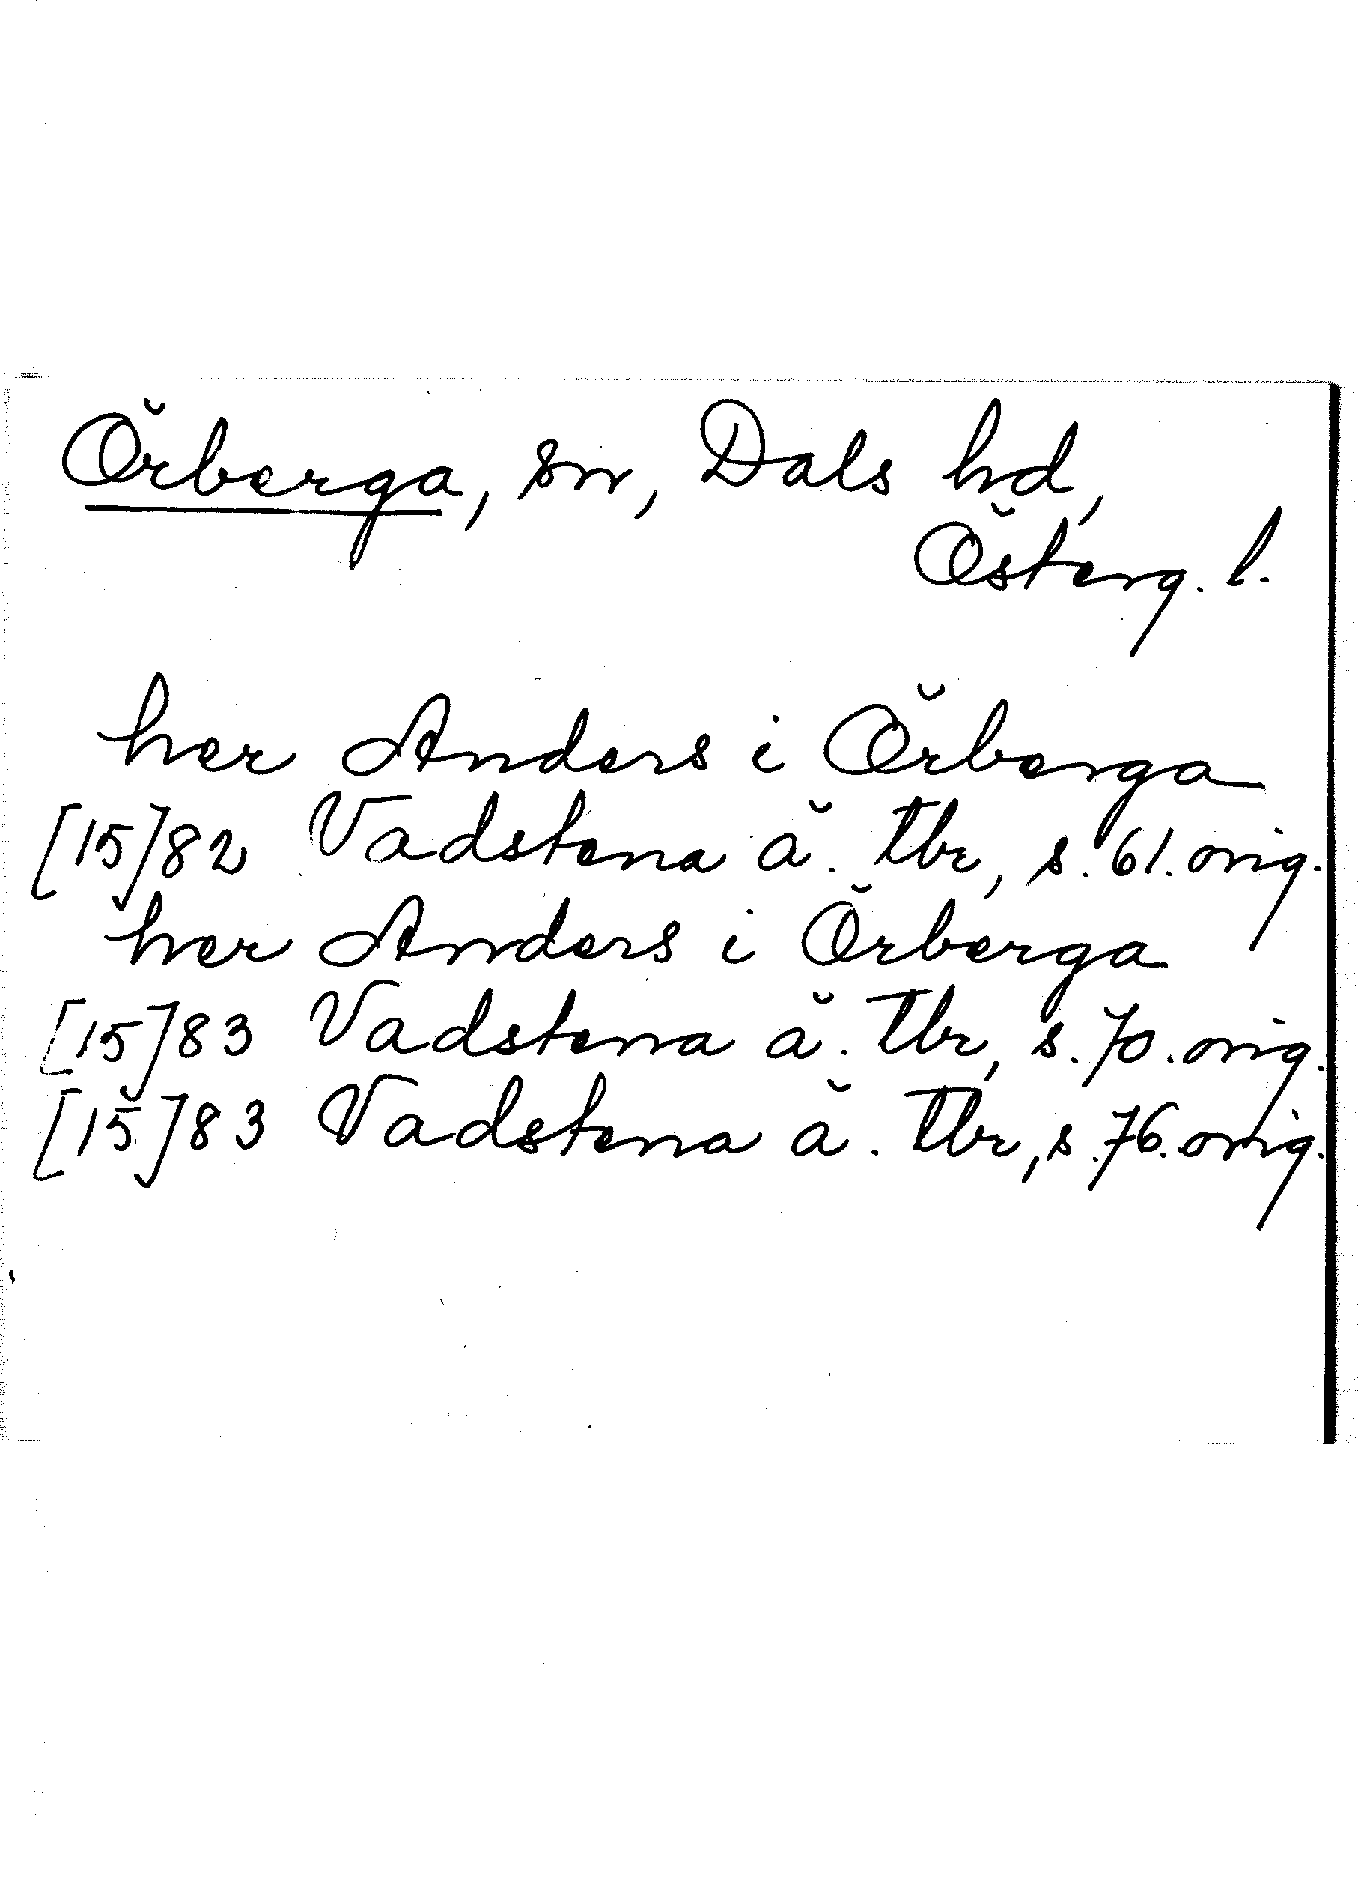 Örberga, sn, Dals hd,
Österg. l.
her Anders i Örberga
[15]82 Vadstena ä. Tbr, s. 61. orig.
her Anders i Örberga
[15]83 Vadstena ä. Tbr, s. 70. orig.
[15]83 Vadstena ä. Tbr, s. 76. orig.